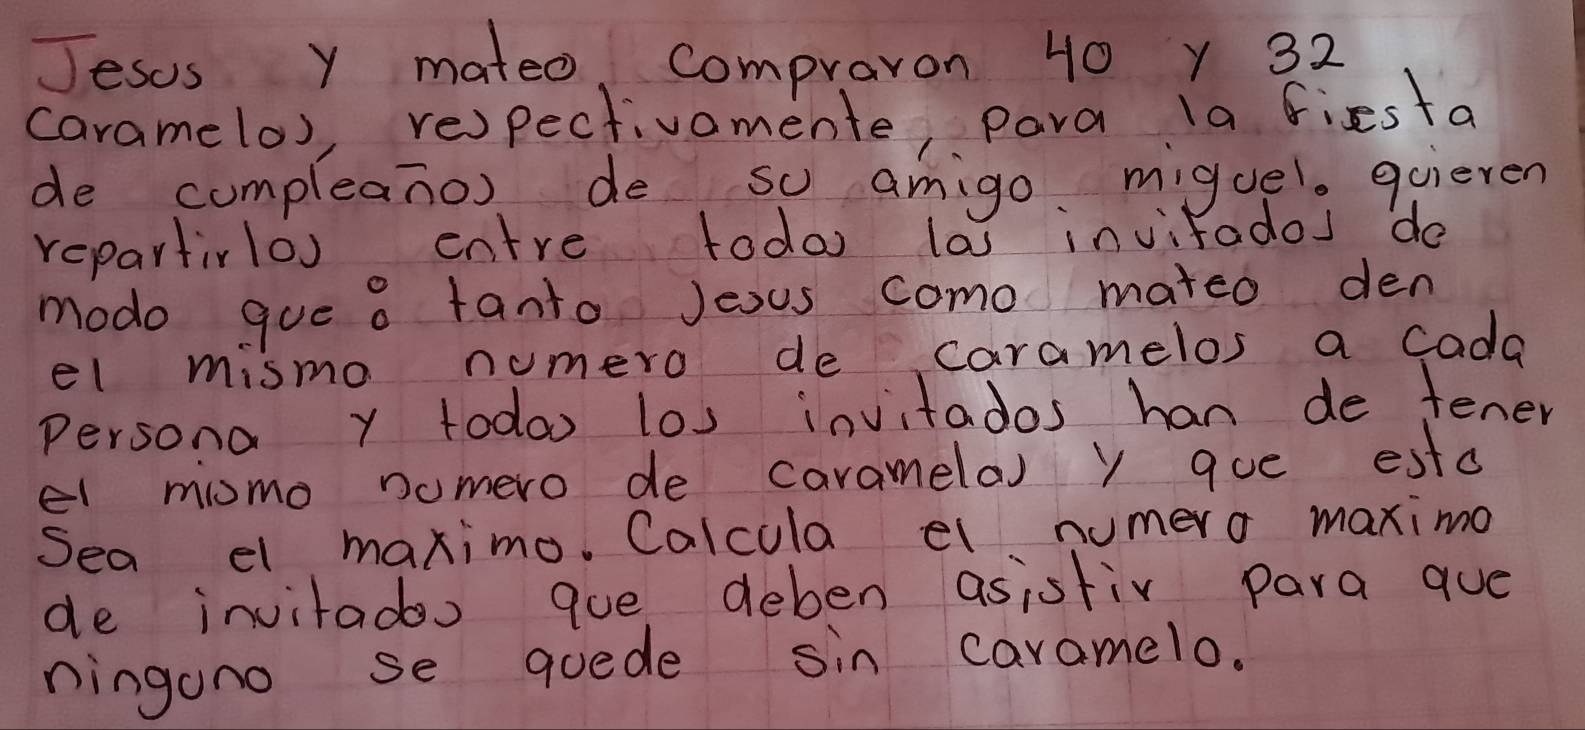 Jesus y mateo compraron 40 y 32
caramelos, respectivamente, para la fiesta
de cumpleaños de su amigo miguel. quieren
repartirlos entre todos los invitados de
modo que: tanto Jesus como mateo den
el mismo numero de caramelos a cada
persona y todos los invitados han de tener
el mismo numero de caramelos y que esto
Sea el maximo. Calcula el numero maximo
de invitados que deben asistir para que
ninguno se quede sin caramelo.